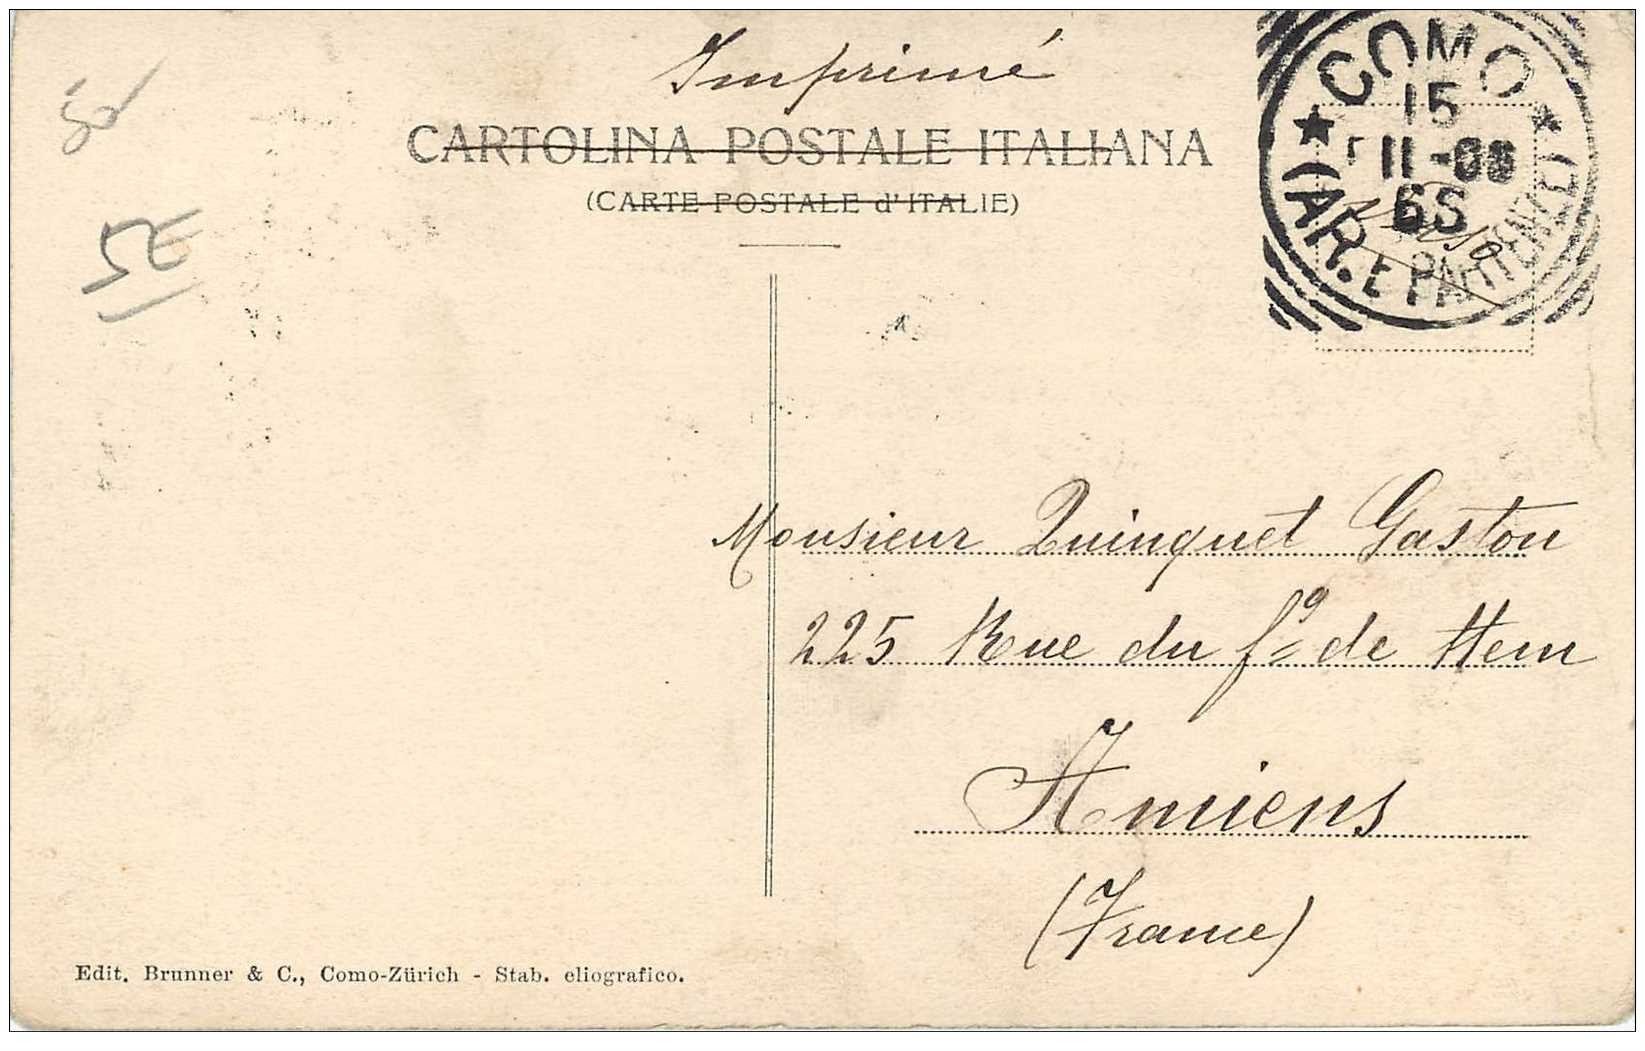 Imprimé
CARTOLINA POSTALE ITALIANA
(CARTE POSTALE d'ITALIE)
COMO
15
11-08
6S
(AR. E PARTENZA)
5E
Monsieur Quinquet Gaston
225 Rue du fg de Hem
Amiens
(France)
Edit. Brunner & C., Como-Zürich - Stab. eliografico.